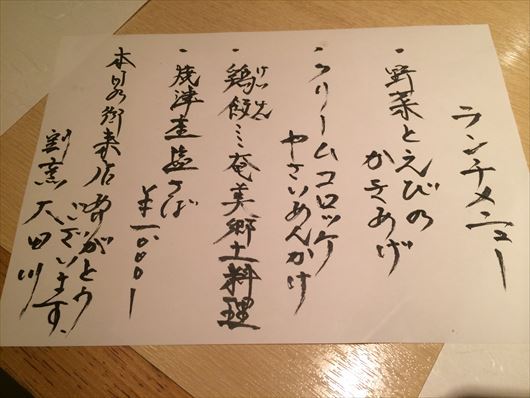 ランチメニュー
・野菜とえびの
かきあげ
・クリームコロッケ
やさいあんかけ
けいはん
・鶏飯ミニ奄美郷土料理
・焼津産塩さば
¥1000ー
本日は御来店ありがとう
ございます。
割烹 大田川